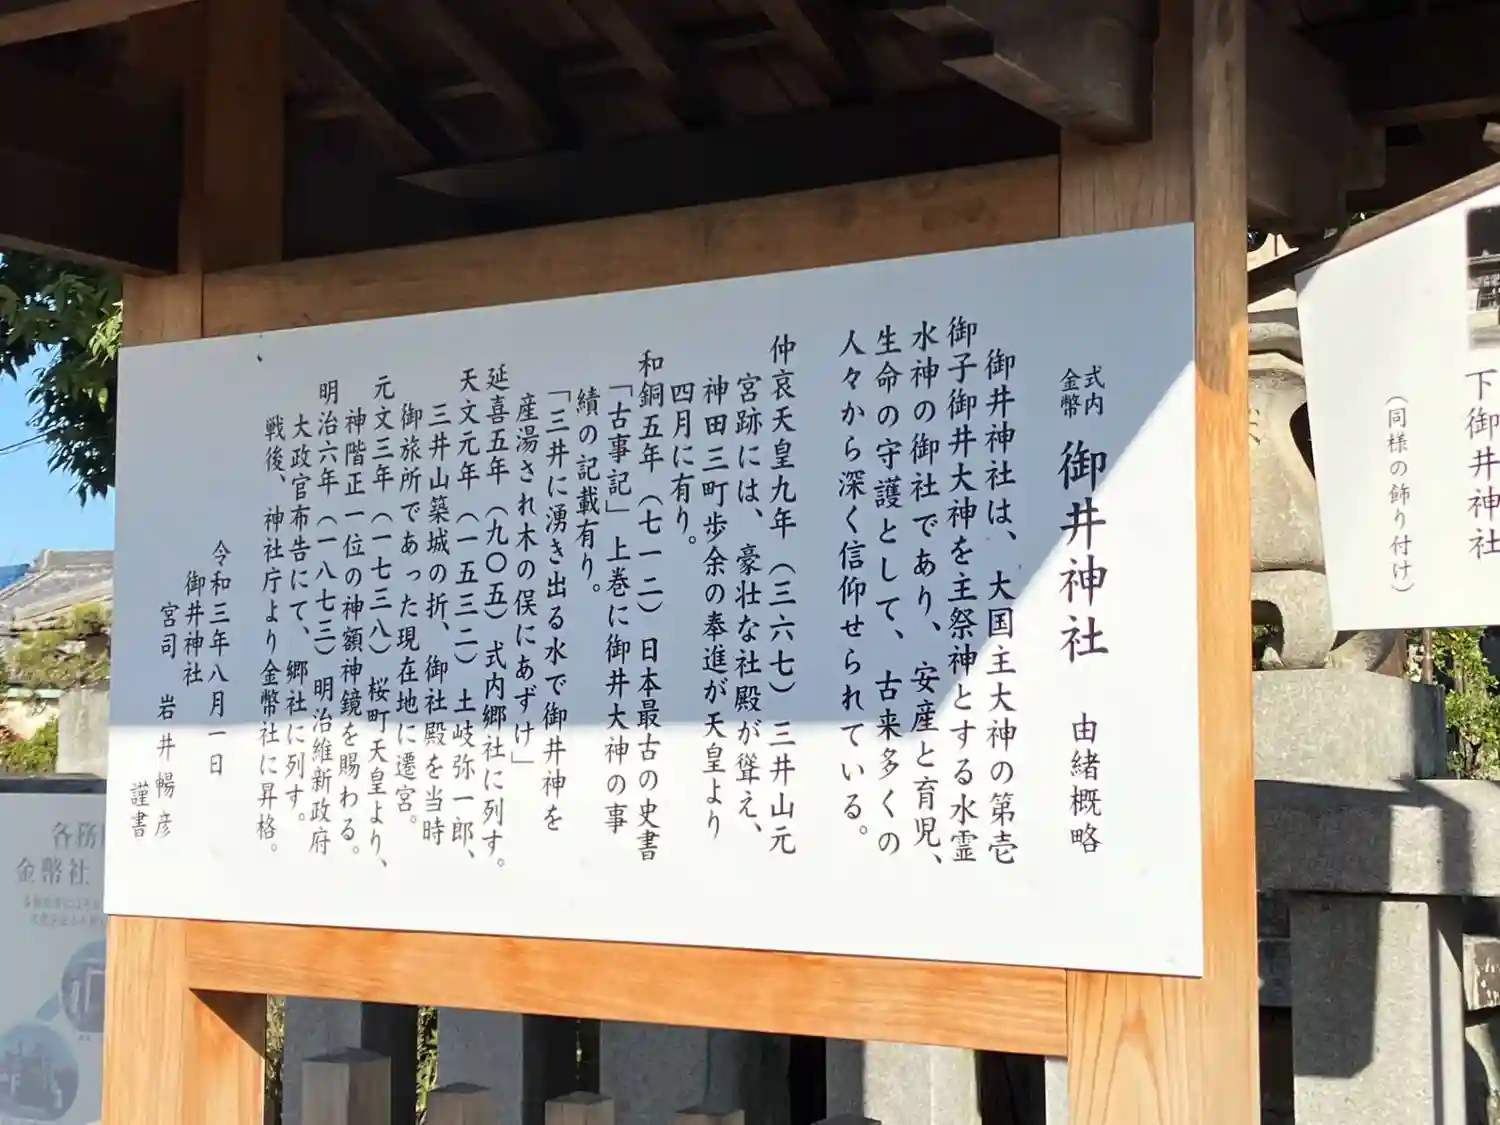 式内
金幣
御井神社 由緒概略
御井神社は、大国主大神の第壱
御子御井大神を主祭神とする水霊
水神の御社であり、安産と育児、
生命の守護として、古来多くの
人々から深く信仰せられている。
仲哀天皇九年(三六七)三井山元
宮跡には、豪壮な社殿が聳え、
神田三町歩余の奉進が天皇より
四月に有り。
和銅五年(七一二)日本最古の史書
「古事記」上巻に御井大神の事
績の記載有り。
「三井に湧き出る水で御井神を
産湯され木の俣にあずけ」
延喜五年(九〇五)式内郷社に列す。
天文元年(一五三二)土岐弥一郎、
三井山築城の折、御社殿を当時
御旅所であった現在地に遷宮。
元文三年(一七三八)桜町天皇より、
神階正一位の神額神鏡を賜わる。
明治六年(一八七三)明治維新政府
大政官布告にて、郷社に列す。
戦後、神社庁より金幣社に昇格。
令和三年八月一日
御井神社
宮司 岩井暢彦
謹書
下御井神社
(同様の飾り付け)
各務
金幣社